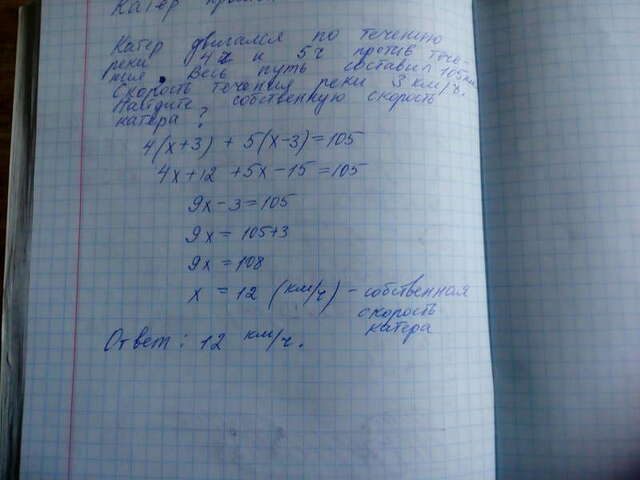 Катер
Катер двигался по течению
реки 4ч и 5ч против тече-
ния. Весь путь составил 105 км.
Скорость течения реки 3 км/ч.
Найдите собственную скорость
катера?
4(x+3) + 5(x-3)=105
4x+12 +5x-15=105
9x-3=105
9x = 105+3
9x = 108
x = 12 (км/ч) - собственная
скорость
катера
Ответ: 12 км/ч.